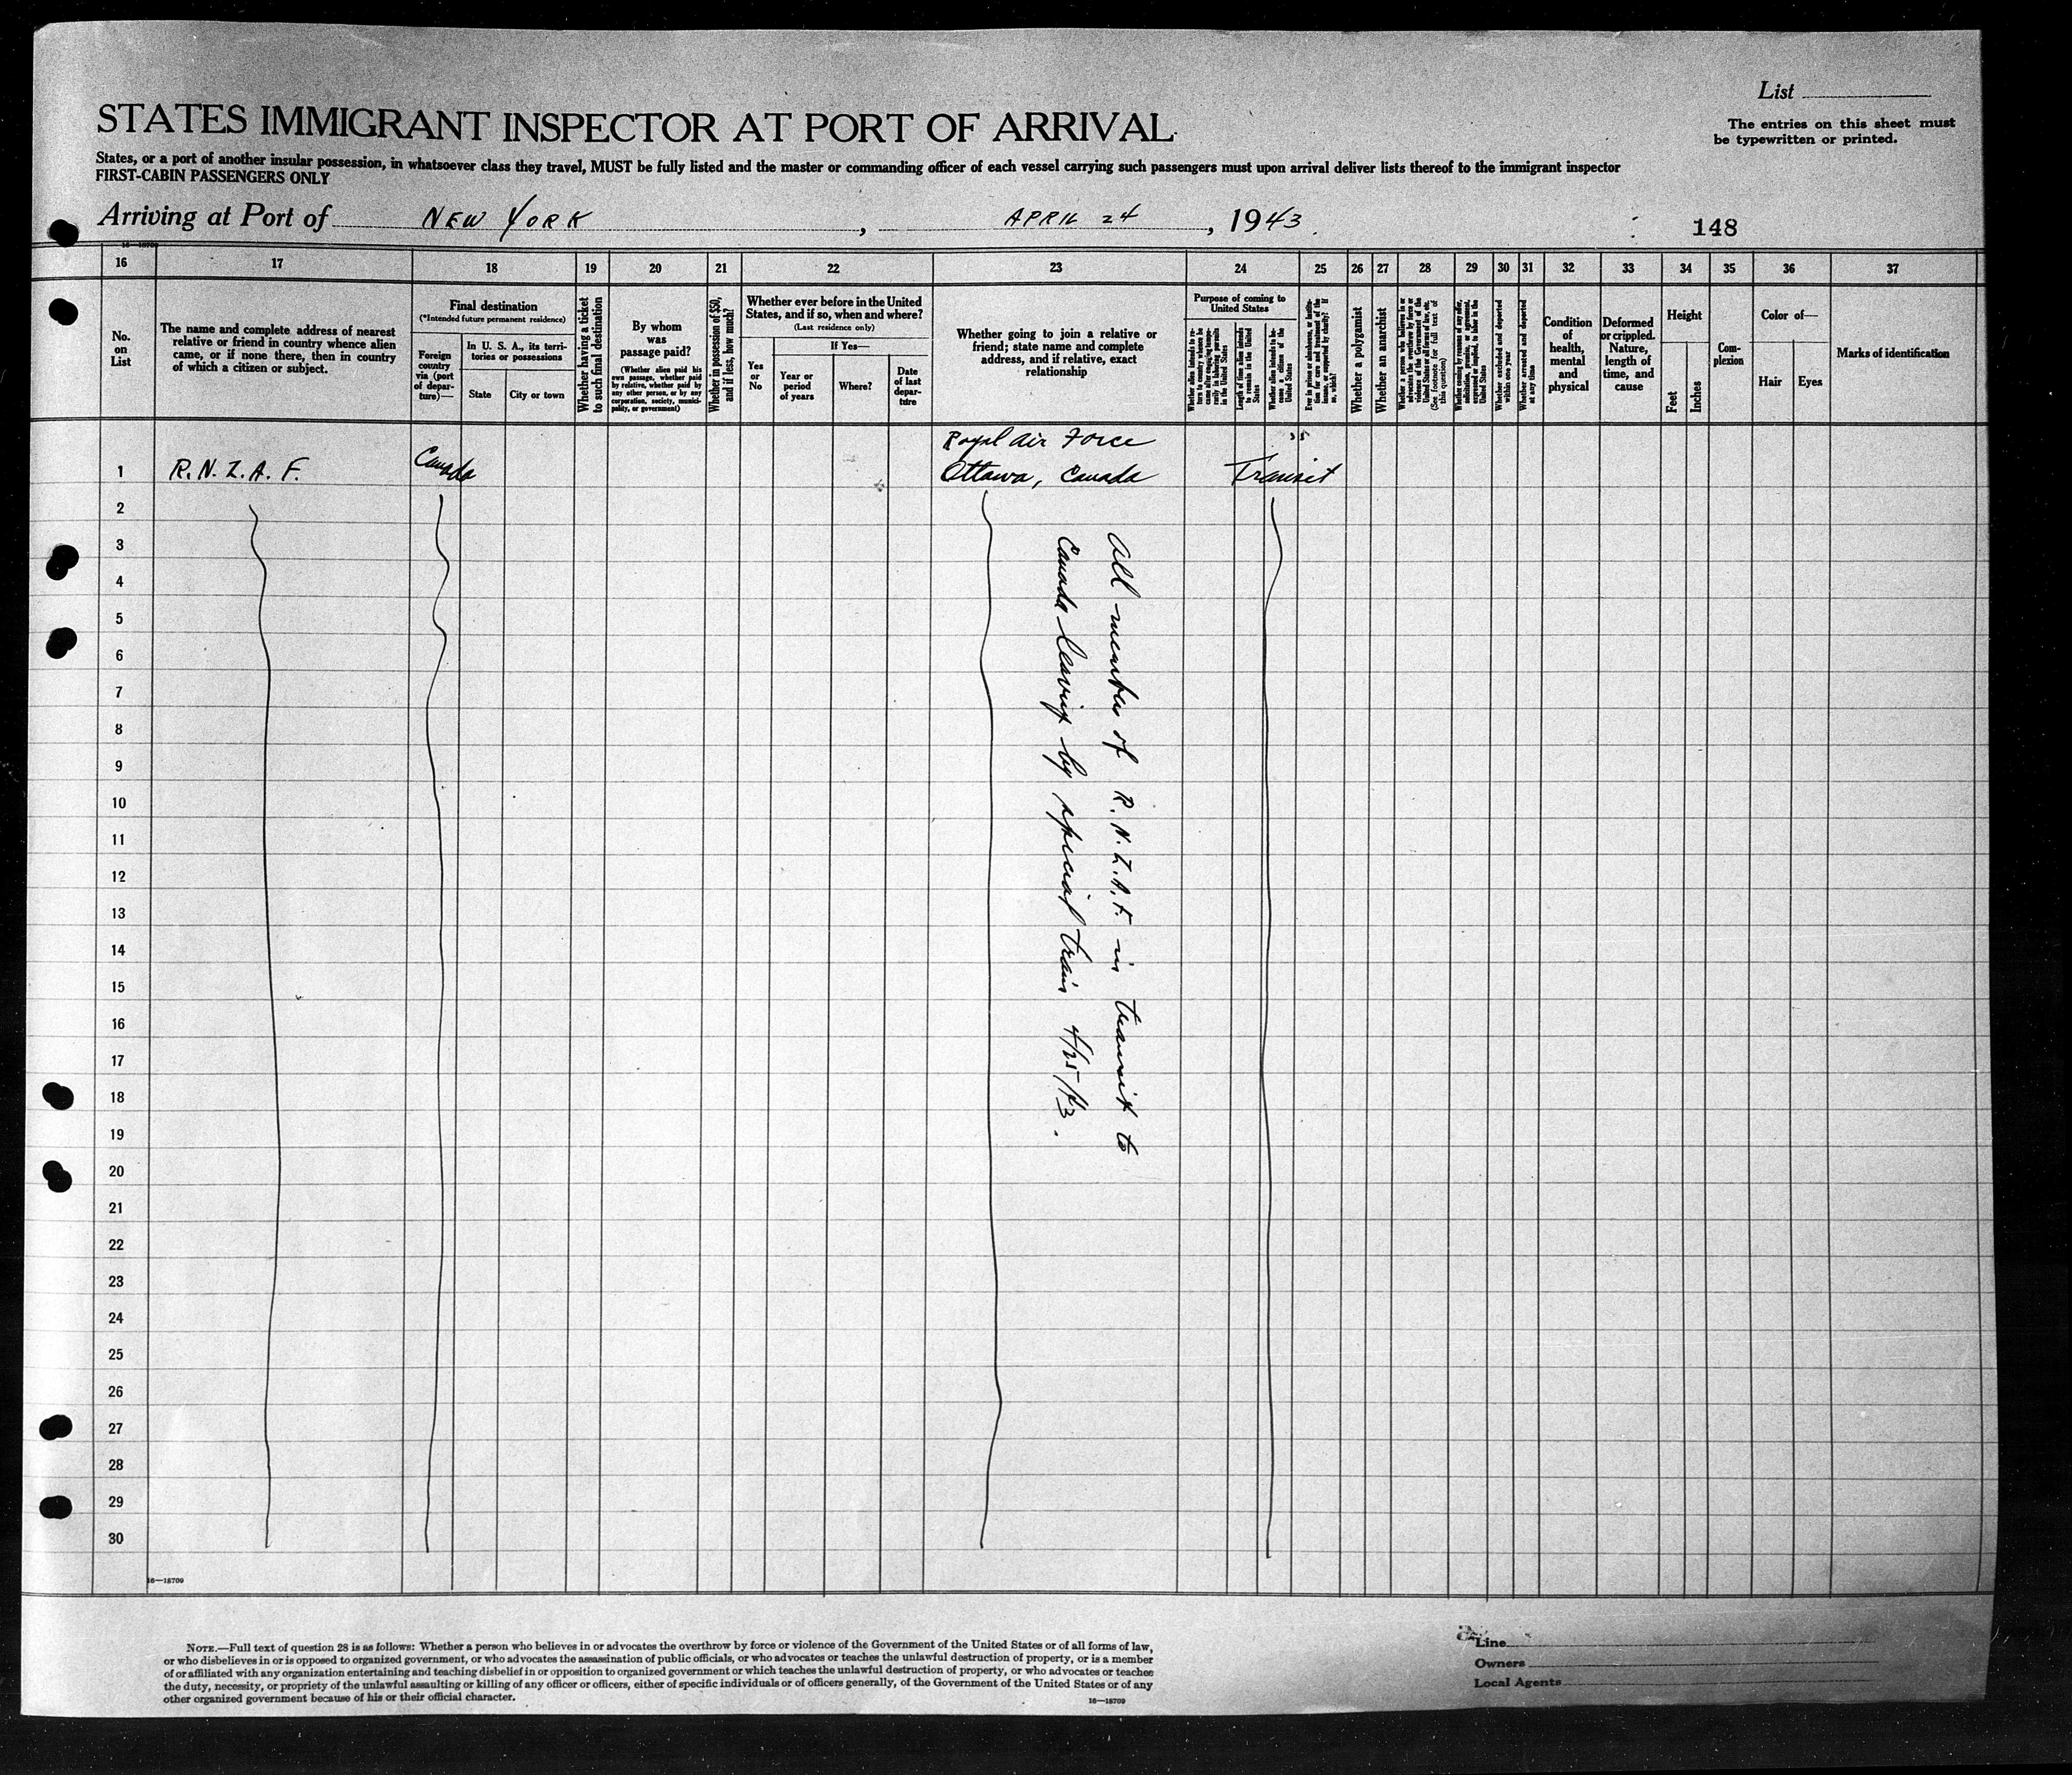 List
STATES IMMIGRANT INSPECTOR AT PORT OF ARRIVAL
The entries on this sheet must
be typewritten or printed.
States, or a port of another insular possession, in whatsoever class they travel, MUST be fully listed and the master or commanding officer of each vessel carrying such passengers must upon arrival deliver lists thereof to the immigrant inspector
FIRST-CABIN PASSENGERS ONLY
Arriving at Port of NEW YORK, APRIL 24, 1943.
148
16—18709
16 17 18 19 20 21 22 23 24 25 26 27 28 29 30 31 32 33 34 35 36 37
No.
on
List
The name and complete address of nearest
relative or friend in country whence alien
came, or if none there, then in country
of which a citizen or subject.
Final destination
(*Intended future permanent residence)
Foreign
country
via (port
of depar-
ture)—
In U. S. A., its terri-
tories or possessions
State
City or town
Whether having a ticket
to such final destination
By whom
was
passage paid?
(Whether alien paid his
own passage, whether paid
by relative, whether paid by
any other person, or by any
corporation, society, munici-
pality, or government)
Whether in possession of $50,
and if less, how much?
Whether ever before in the United
States, and if so, when and where?
(Last residence only)
Yes
or
No
If Yes—
Year or
period
of years
Where?
Date
of last
depar-
ture
Whether going to join a relative or
friend; state name and complete
address, and if relative, exact
relationship
Purpose of coming to
United States
Whether alien intends to re-
turn to country whence he
came after engaging tempo-
rarily in laboring pursuits
in the United States
Length of time alien intends
to remain in the United
States
Whether alien intends to be-
come a citizen of the
United States
Whether a polygamist
Whether an anarchist
Whether a person who believes in or
advocates the overthrow by force or
violence of the Government of the
United States or all forms of law, etc.
(See footnote for full text of
this question)
Whether coming by reason of any offer,
solicitation, promise, or agreement,
expressed or implied, to labor in the
United States
Whether excluded and deported
within one year
Whether arrested and deported
at any time
Condition
of
health,
mental
and
physical
Deformed
or crippled.
Nature,
length of
time, and
cause
Height
Feet
Inches
Com-
plexion
Color of—
Hair
Eyes
Marks of identification
Royal Air Force
1 R.N.Z.A.F. Canada Ottawa, Canada Transit
2
3
4
5
6
7
8
9
10
11
12
13
14
15
16
17
18
19
20
21
22
23
24
25
26
27
28
29
30
All members of R.N.Z.A.F. in transit to
Canada leaving by special train 4/25/43.
16—18709
NOTE.—Full text of question 28 is as follows: Whether a person who believes in or advocates the overthrow by force or violence of the Government of the United States or of all forms of law,
or who disbelieves in or is opposed to organized government, or who advocates the assassination of public officials, or who advocates or teaches the unlawful destruction of property, or is a member
of or affiliated with any organization entertaining and teaching disbelief in or opposition to organized government or which teaches the unlawful destruction of property, or who advocates or teaches
the duty, necessity, or propriety of the unlawful assaulting or killing of any officer or officers, either of specific individuals or of officers generally, of the Government of the United States or of any
other organized government because of his or their official character.
16—18709
Line
Owners
Local Agents